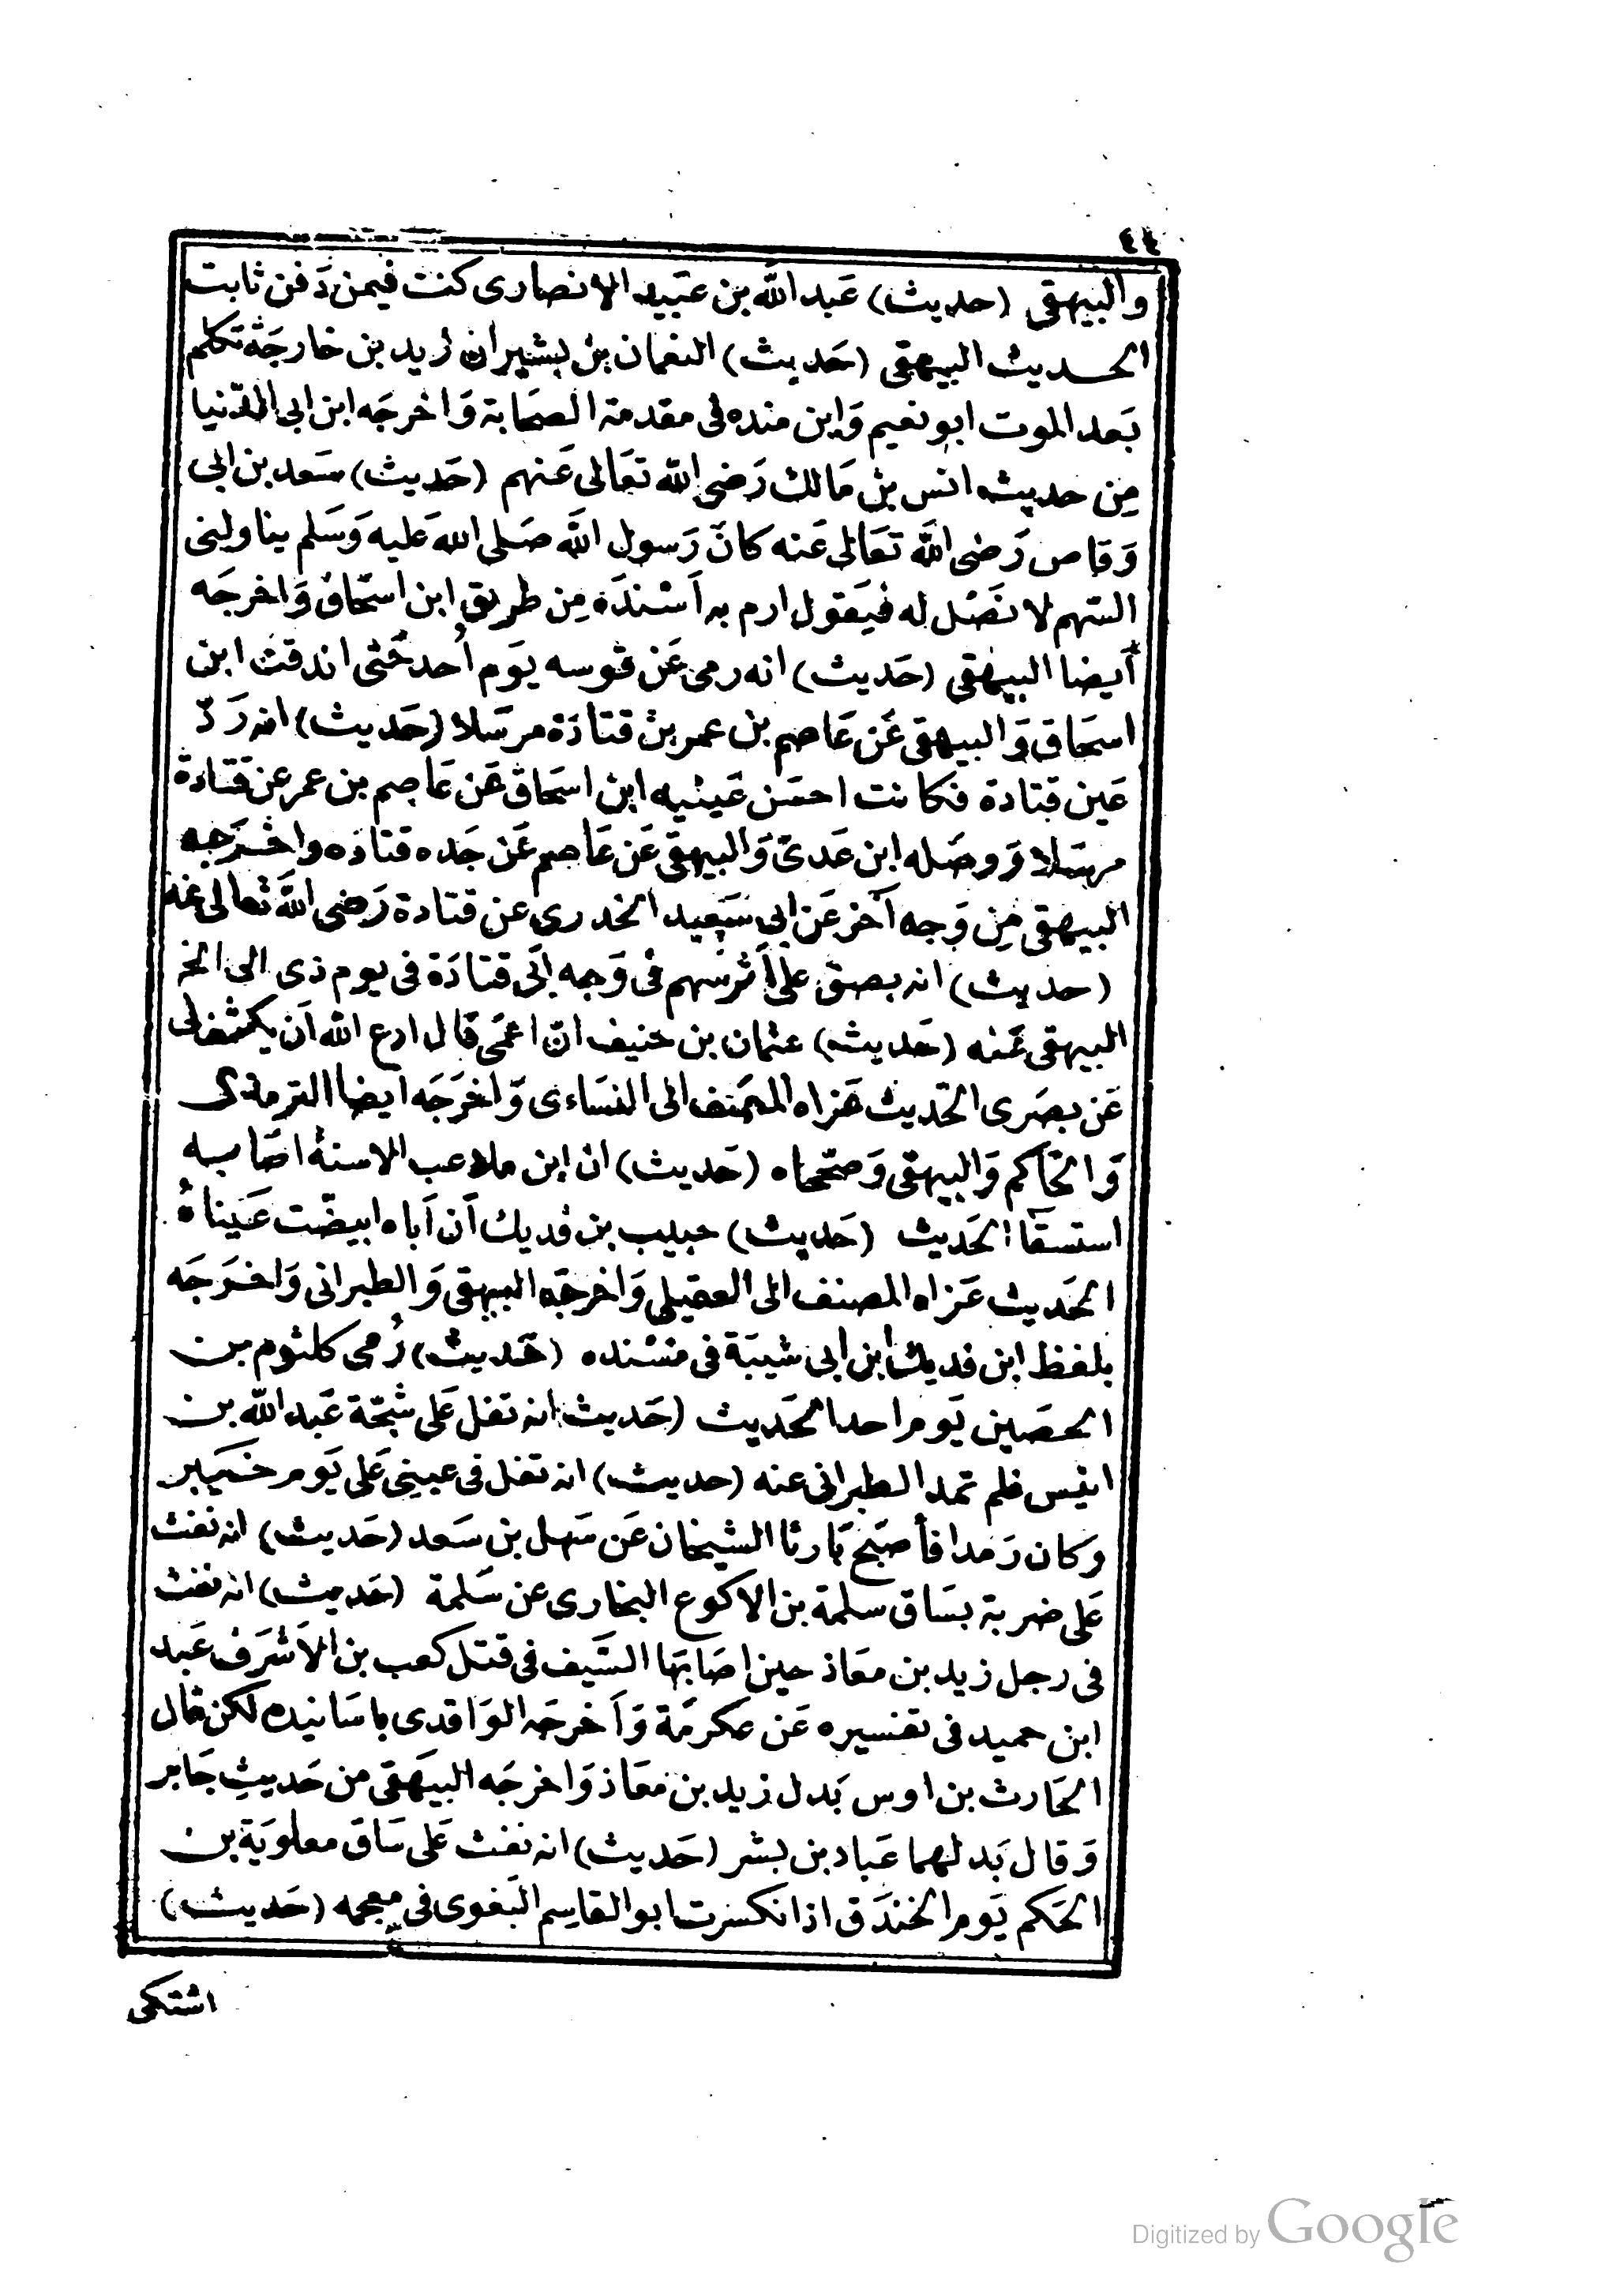 ٤٤
والبيهقى (حديث) عَبد الله بن عبَيد الانصارى كنت فيمن دَفن ثابت
الحديث البيهقى (حَديث) النعمان بن بشير ان زيد بن خارجَة تكلم
بَعد الموت ابو نعيم وَابن منده فى مقدمة الصحَابة وَاخرجَه ابن ابى الدّنيا
مِن حديث انس بن مَالك رَضى الله تعَالى عَنهم (حَديث) سَعد بن ابى
وَقاص رَضى اللهَ تعَالى عَنه كانَ رَسول اللهَ صَلى الله عَليه وَسَلم يناولنى
السّهم لا نَصْل له فيَقول ارم به اَسْندَه مِن طريق ابن اسحَاق وَاخرجَه
أيضا البيهقى (حَديث) انه رمى عَن قوسه يَوم أُحد حَتى اندقت ابن
اسحَاق وَالبيهقى عَن عَاصم بن عمر بن قتادَة مرسَلا (حَديث) انه رَدّ
عَين قتادة فكانت احسَن عَينيه ابن اسحَاق عَن عَاصِم بن عمر عن قتَادة
مرسَلا وَوصَله ابن عَدىّ وَالبيهقى عَن عَاصم عَن جَده قتادَه واخرَجه
البيهقى مِن وَجه آخر عَن ابى سَعِيد الخدرى عن قتادة رَضى اللهَ تعالى عَنه
(حديث) انه بصق على أثر سَهم فى وَجه ابى قتادَة فى يوم ذى الى الخ
البيهقى عَنه (حَديث) عثمان بن حنيف انّ اعمَى قال ادع الله اَن يكشف لى
عَن بصَرى الحَديث عَزاه المصَنف الى النسَاءى وَاخرَجَه ايضا الترمذى
وَالحَاكم وَالبيهقى وَصحّحاه (حَديث) ان ابن ملاعب الاسنة اصَابه
استسقآ الحَديث (حَديث) حبيب بن فديك اَن اَباه ابيضّت عَيناهُ
الحَديث عَزاه المصنف الى العقيلى وَاخرجَه البيهقى وَالطبرانى وَاخرَجَه
بلفظ ابن فديك ابن ابى شيبَة فى مسْنده (حَديث) رُمى كلثوم بن
الحصَين يَوم احد الحَديث (حَديث انه تفل عَلى شجّة عَبد الله بن
انيس فلم تمد الطبرانى عنه (حديث) انه تفل فى عينى عَلى يَوم خيبر
وكان رَمدا فأصبَح بَارئا الشيخان عَن سَهل بن سَعد (حَديث) انه نفث
عَلى ضربة بسَاق سلمة بن الاكوع البخارى عن سَلمة (حَديث) انه نفث
فى رجل زيد بن معَاذ حين اصَابتَها السّيف فى قتل كعب بن الاَشرَف عَبد
ابن حميد فى تفسيره عَن عكرمَة وَاَخرجَه الوَاقدى باسَانيده لكن قال
الحَارث بن اوس بَدل زيد بن معَاذ وَاخرجَه البيهَقى من حَديثِ جَابر
وَقال بَدلهما عَباد بن بشر (حَديث) انه نفث عَلى سَاق معاويَة بن
الحَكم يَوم الخندَق اذا نكسَرت ابو القاسِم البَغوى فى معجمه (حَديث)
اشتكى
Digitized by Google